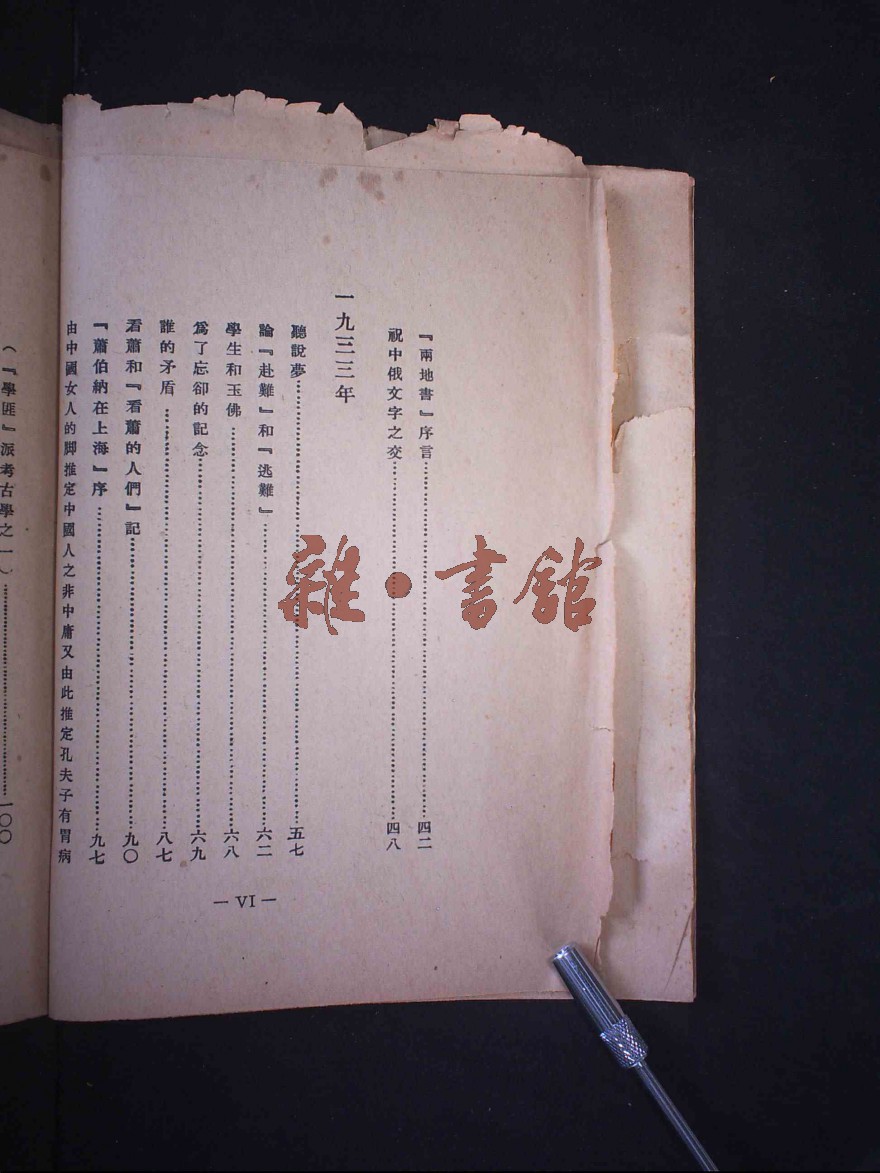 『兩地書』序言……四二
祝中俄文字之交……四八
一九三三年
聽說夢……五七
論『赴難』和『逃難』……六二
學生和玉佛……六八
爲了忘卻的記念……六九
誰的矛盾……八七
看蕭和『看蕭的人們』記……九〇
『蕭伯納在上海』序……九七
由中國女人的脚推定中國人之非中庸又由此推定孔夫子有胃病
(『學匪』派考古學之一)……一〇〇
— VI —
雜·書館